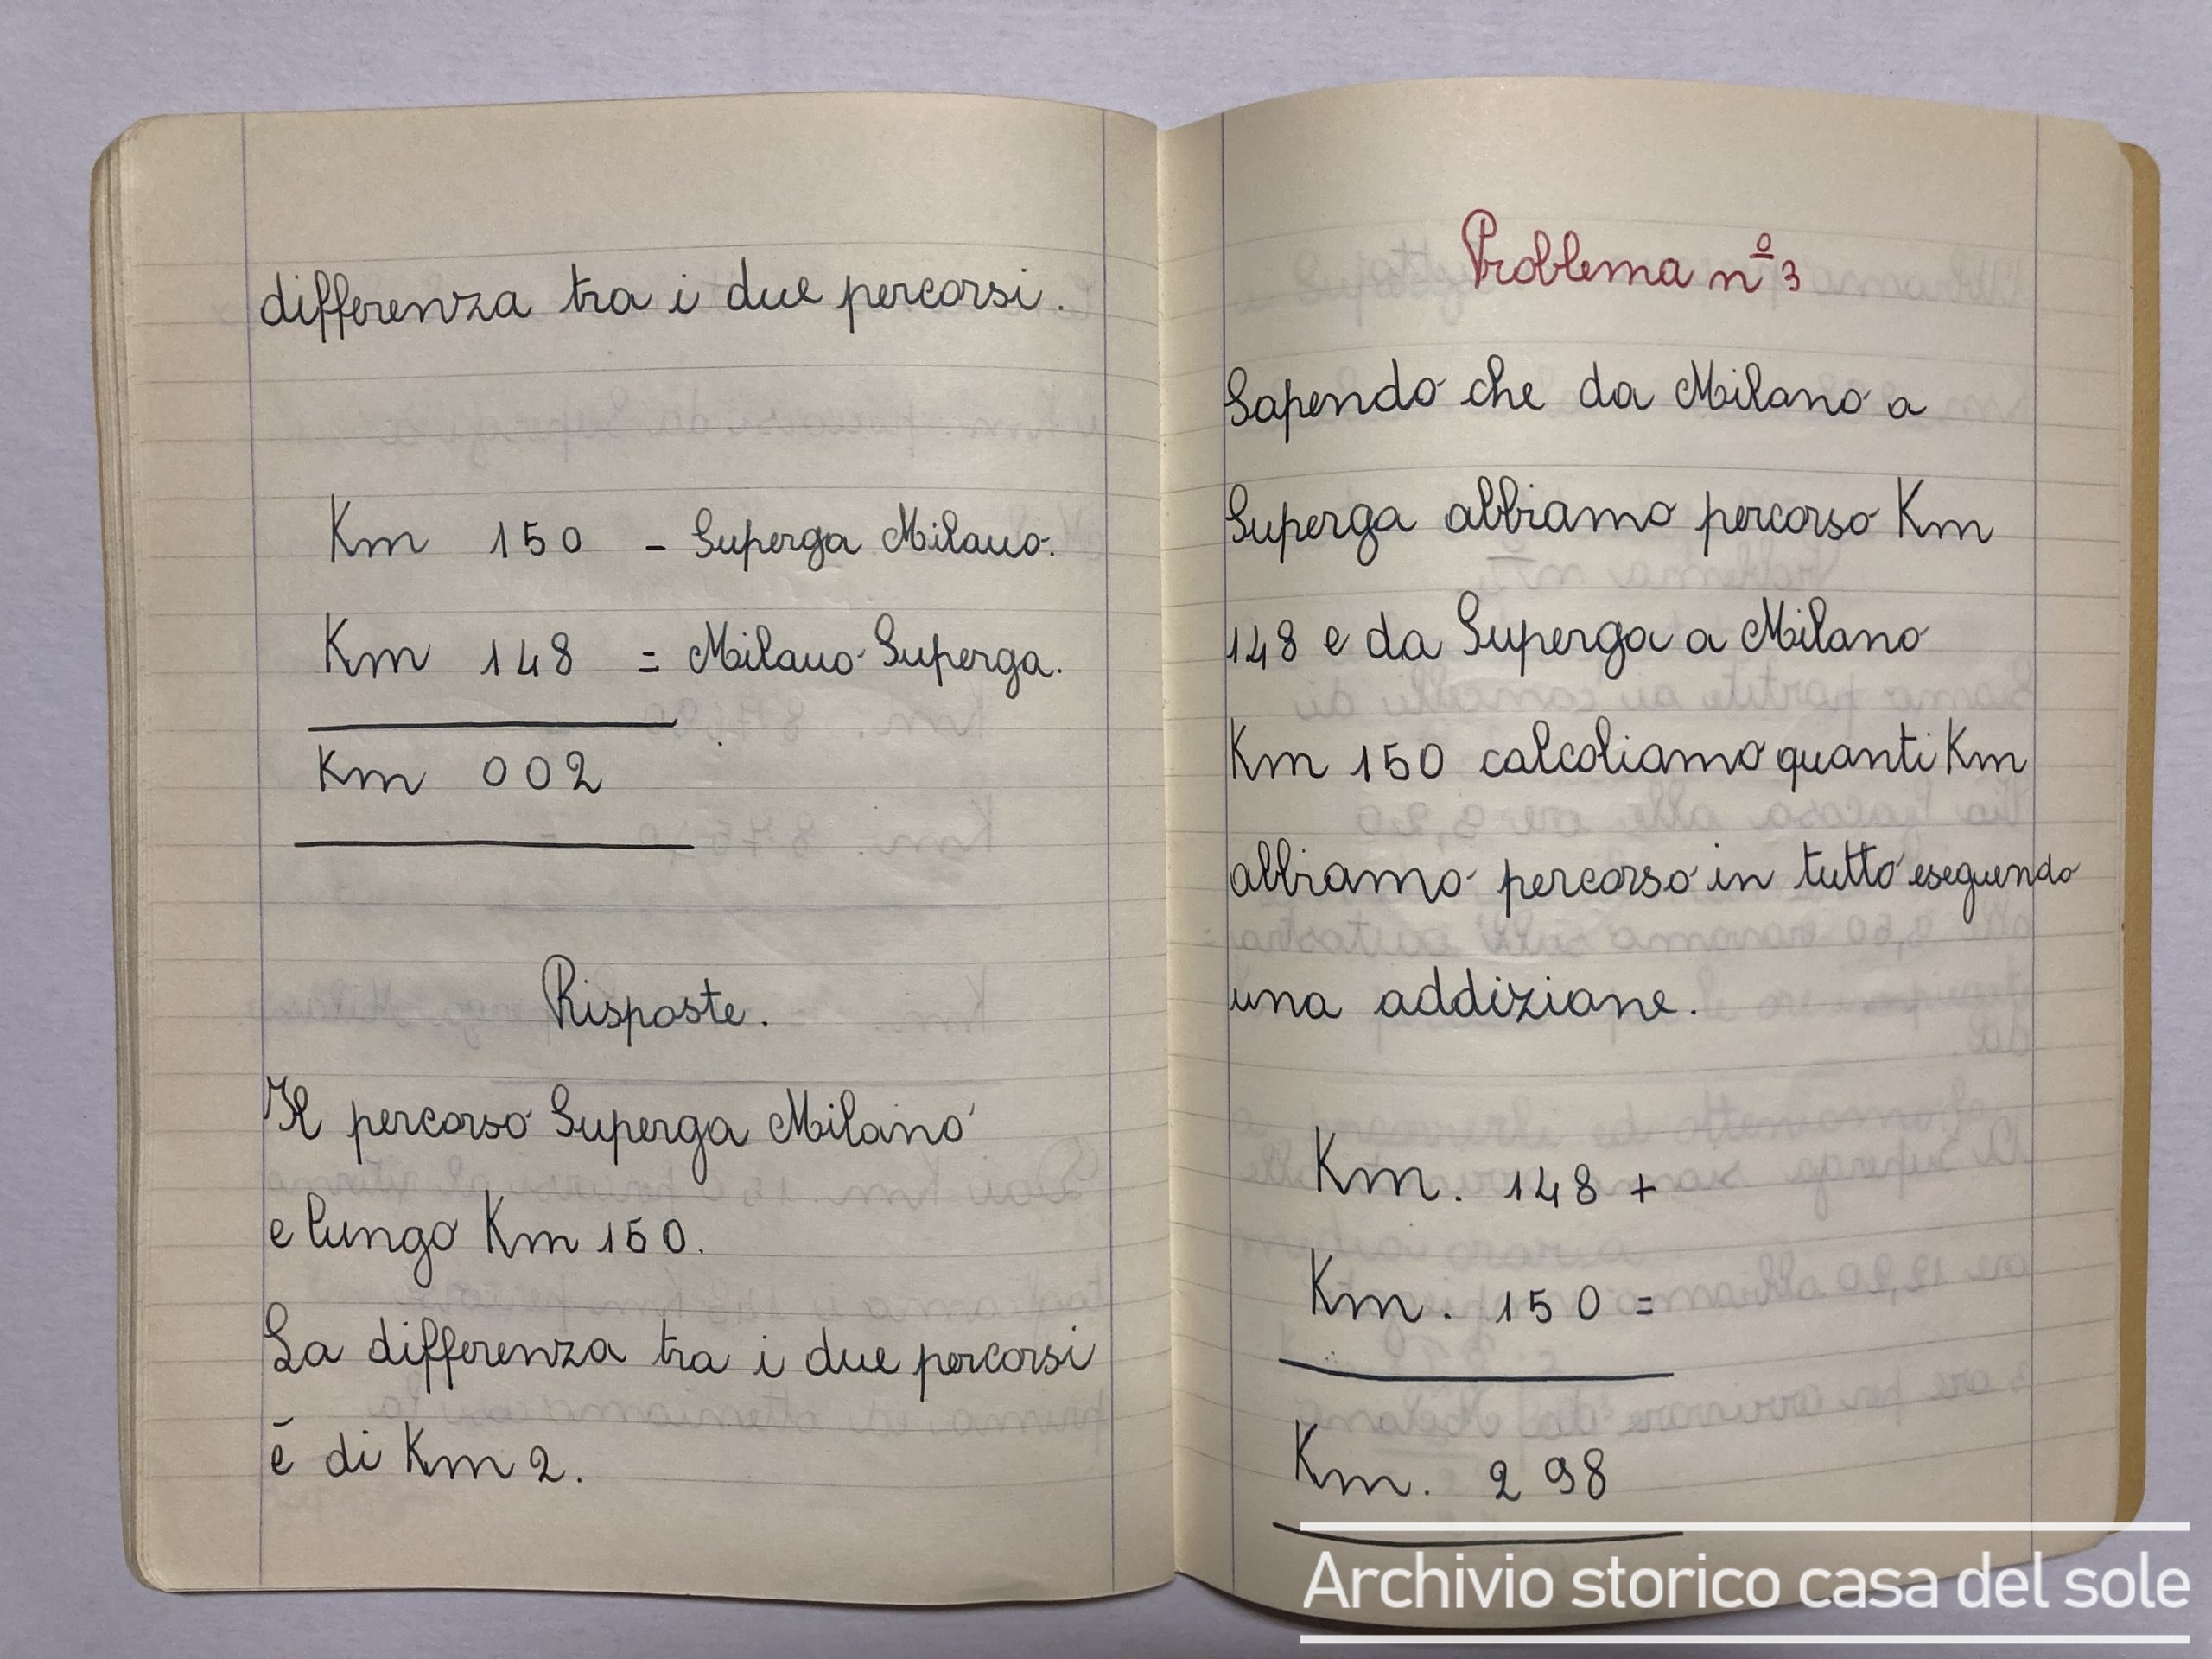 differenza tra i due percorsi.
Km 150 - Superga Milano.
Km 148 = Milano Superga.
Km 002
Risposte.
Il percorso Superga Milano
e lungo Km 150.
La differenza tra i due percorsi
è di Km 2.
Problema nº 3
Sapendo che da Milano a
Superga abbiamo percorso Km
148 e da Superga a Milano
Km 150 calcoliamo quanti Km
abbiamo percorso in tutto eseguendo
una addizione.
Km. 148 +
Km. 150 =
Km. 298
Archivio storico casa del sole